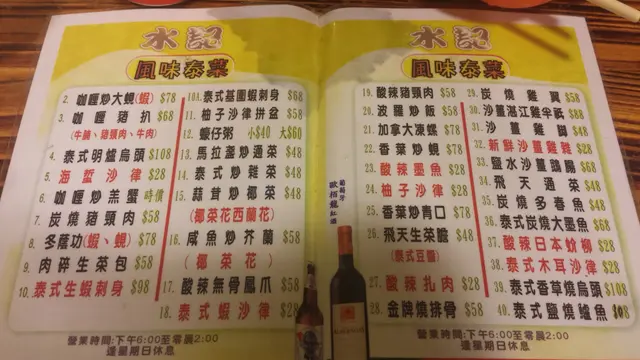 水記
風味泰菜
2. 咖喱炒大蜆(蝦) $78
3. 咖喱豬扒 $68
(牛腩、豬頸肉、牛肉)
4. 泰式明爐烏頭 $108
5. 海蜇沙律 $28
6. 咖喱炒羔蟹 時價
7. 炭燒豬頸肉 $58
8. 冬蔭功(蝦、蜆) $78
9. 肉碎生菜包 $58
10. 泰式生蝦刺身 $98
10A. 泰式基圍蝦刺身 $68
11. 柚子沙律拼盆 $58
12. 蠔仔粥 小$40 大$60
13. 馬拉盞炒通菜 $48
14. 泰式炒雜菜 $48
15. 蒜茸炒椰菜 $48
(椰菜花西蘭花)
16. 咸魚炒芥蘭 $58
(椰菜花)
17. 酸辣無骨鳳爪 $58
18. 泰式蝦沙律 $28
營業時間:下午6:00至零晨2:00
逢星期日休息
葡萄牙
紅酒
水記
風味泰菜
19. 酸辣豬頸肉 $58
20. 波羅炒飯 $58
21. 加拿大凍螺 $78
22. 香葉炒蜆 $78
23. 酸辣墨魚 $58
24. 柚子沙律 $28
25. 香葉炒青口 $78
26. 飛天生菜膽 $48
(泰式豆醬)
27. 酸辣扎肉 $28
28. 金牌燒排骨 $58
29. 炭燒雞翼 $58
30. 沙薑湛江雞半隻 $88
31. 沙薑雞腳 $48
32. 新鮮沙薑雞雜 $28
33. 鹽水沙薑鴿腸 $68
34. 飛天通菜 $48
35. 炭燒多春魚 $48
36. 泰式炭燒大墨魚 $68
37. 酸辣日本蚧柳 $28
38. 泰式木耳沙律 $28
39. 泰式香草燒烏頭 $108
40. 泰式鹽燒鱸魚 $108
營業時間:下午6:00至零晨2:00
逢星期日休息